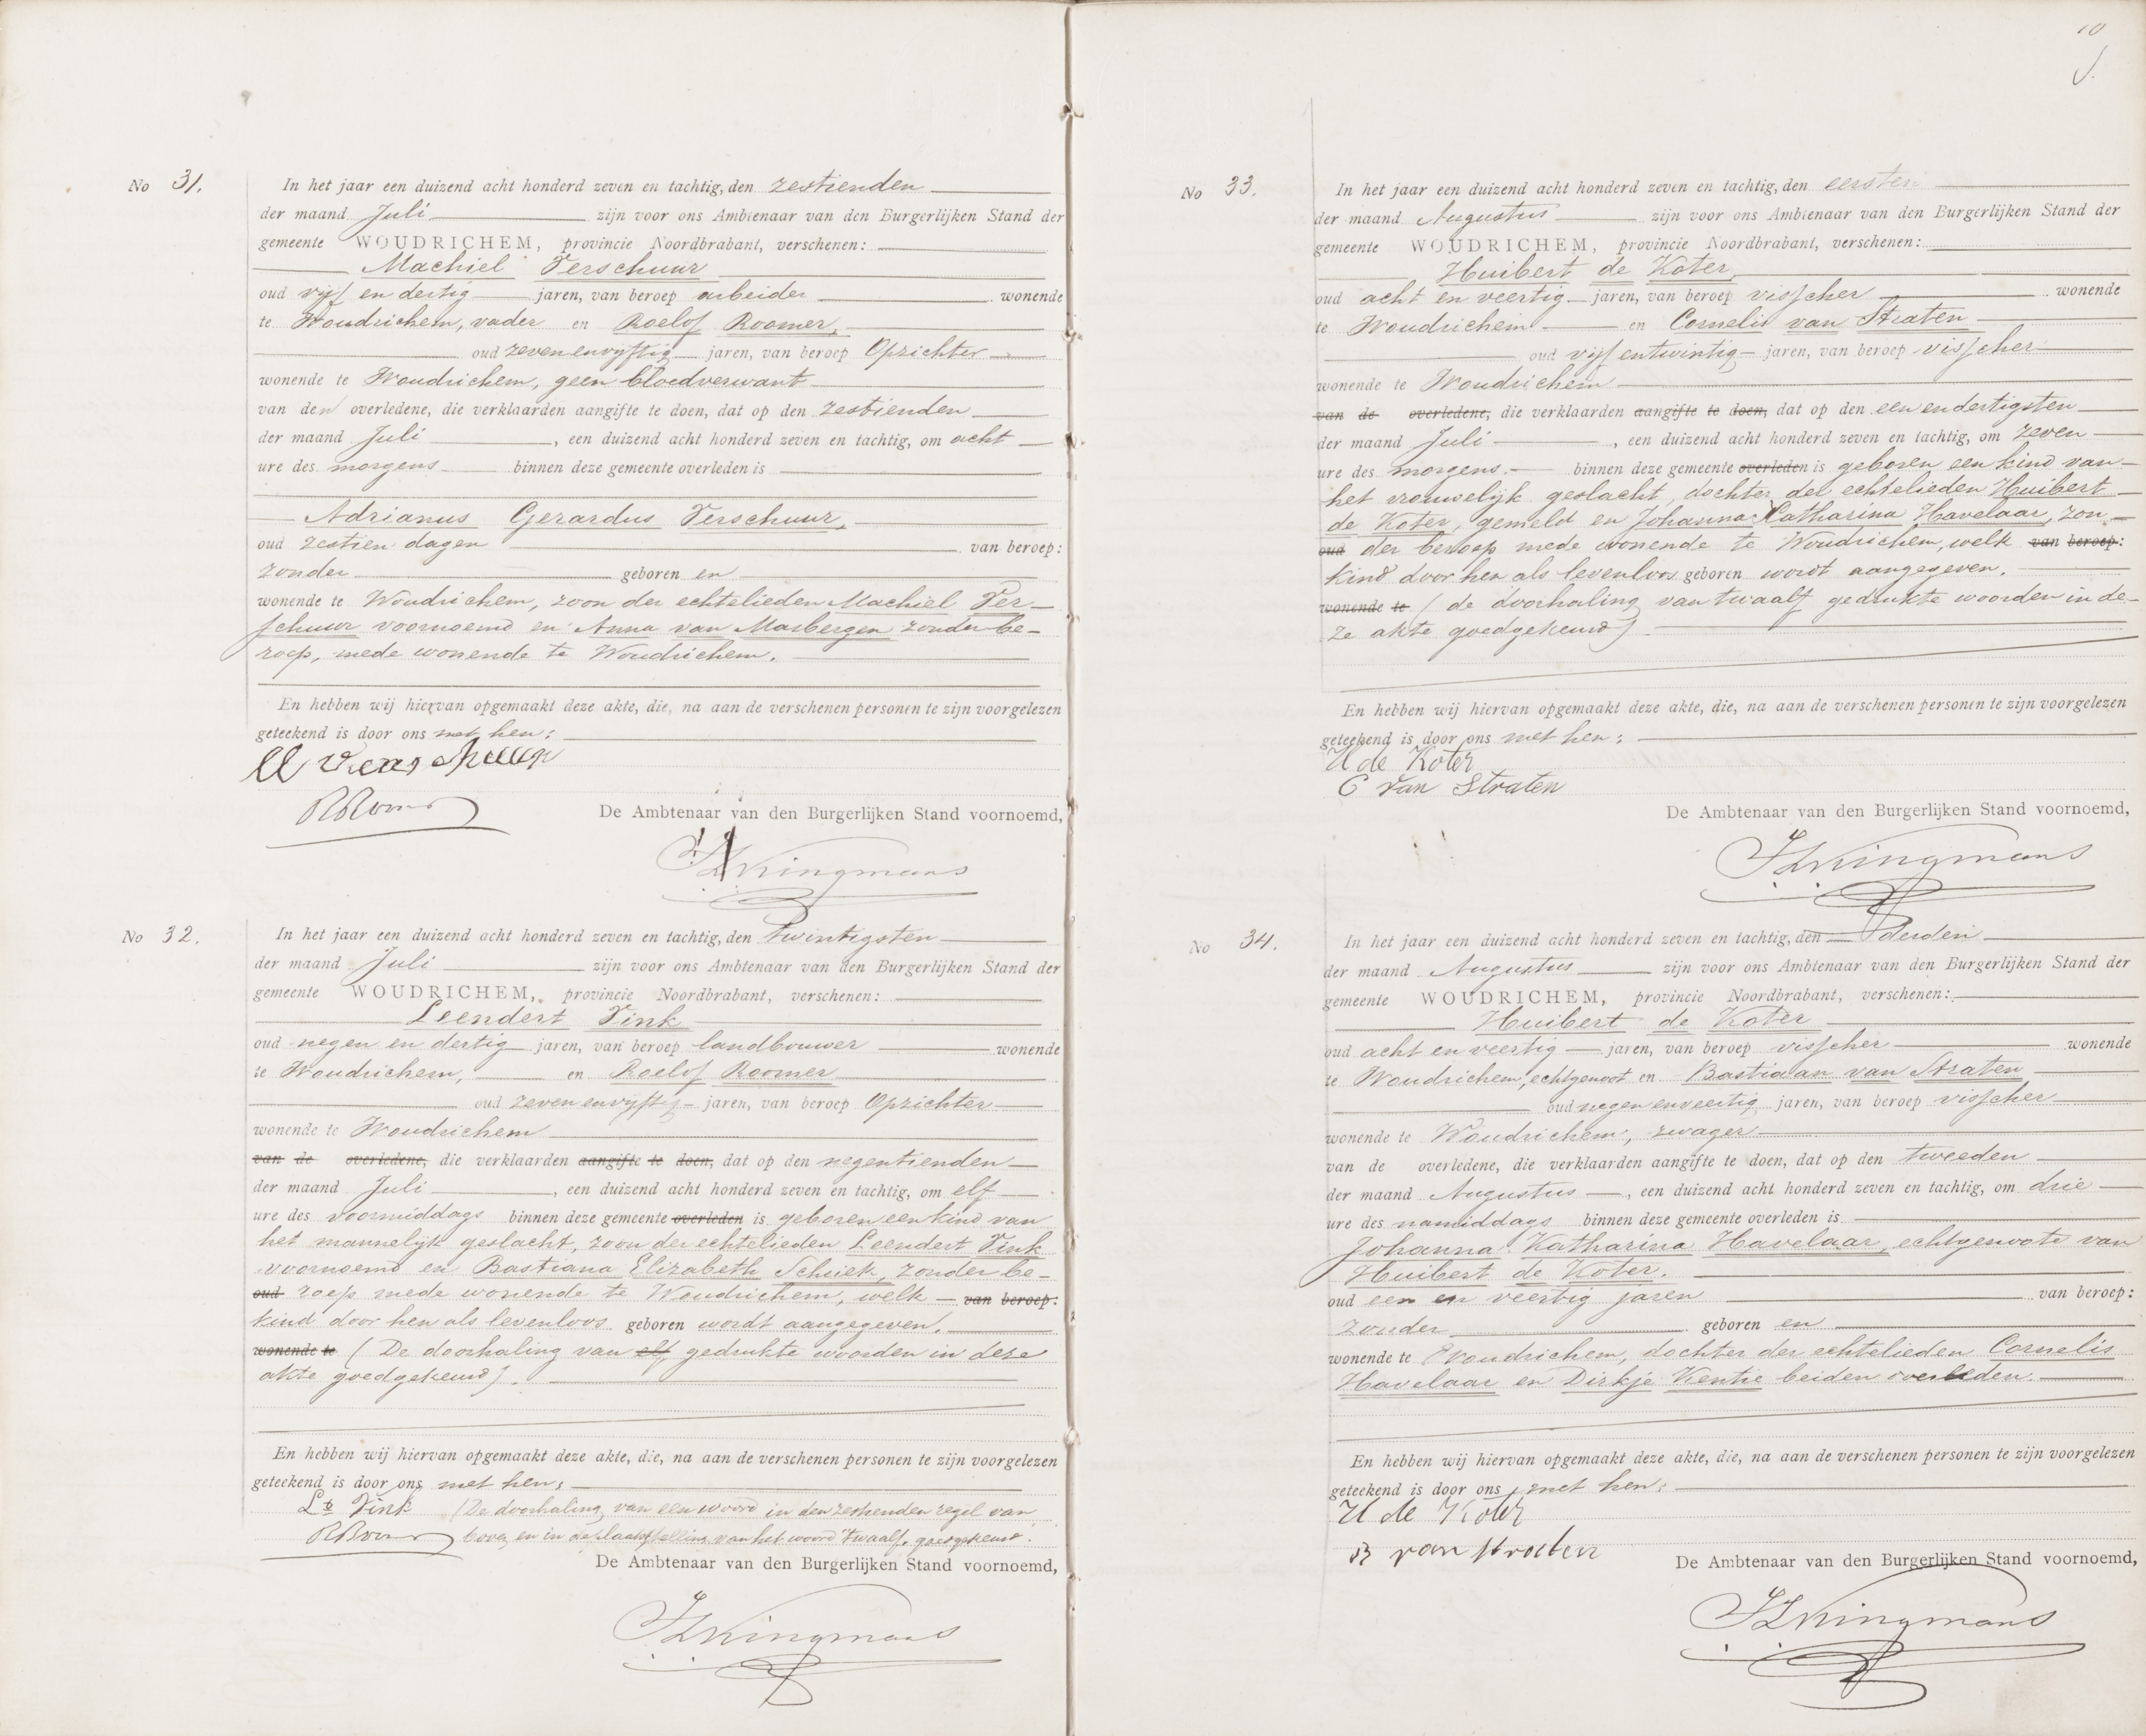 No 31.
In het jaar een duizend acht honderd zeven en tachtig, den zestienden
der maand Juli zijn voor ons Ambtenaar van den Burgerlijken Stand der
gemeente WOUDRICHEM, provincie Noordbrabant, verschenen:
Machiel Verschuur
oud vijf en dertig jaren, van beroep arbeider wonende
te Woudrichem, vader en Roelof Roomer,
oud zevenenvijftig jaren, van beroep Opzichter
wonende te Woudrichem, geen bloedverwant
van den overledene, die verklaarden aangifte te doen, dat op den zestienden
der maand Juli, een duizend acht honderd zeven en tachtig, om acht
ure des morgens binnen deze gemeente overleden is
Adrianus Gerardus Verschuur,
oud zestien dagen van beroep:
zonder geboren en
wonende te Woudrichem, zoon der echtelieden Machiel Ver-
schuur voornoemd en Anna van Masbergen zonder be-
roep, mede wonende te Woudrichem.
En hebben wij hiervan opgemaakt deze akte, die, na aan de verschenen personen te zijn voorgelezen
geteekend is door ons met hen:
M Verschuur
RRoomer
De Ambtenaar van den Burgerlijken Stand voornoemd,
Kingmans
No 32.
In het jaar een duizend acht honderd zeven en tachtig, den twintigsten
der maand Juli zijn voor ons Ambtenaar van den Burgerlijken Stand der
gemeente WOUDRICHEM, provincie Noordbrabant, verschenen:
Leendert Vink
oud negen en dertig jaren, van beroep landbouwer wonende
te Woudrichem, en Roelof Roomer
oud zevenenvijftig jaren, van beroep Opzichter
wonende te Woudrichem
van de overledene, die verklaarden aangifte te doen, dat op den negentienden
der maand Juli, een duizend acht honderd zeven en tachtig, om elf
ure des voormiddags binnen deze gemeente overleden is geboren een kind van
het mannelijk geslacht, zoon der echtelieden Leendert Vink
voornoemd en Bastiana Elizabeth Schiek, zonder be-
oud roep mede wonende te Woudrichem, welk van beroep:
kind door hen als levenloos geboren wordt aangegeven.
wonende te (De doorhaling van elf gedrukte woorden in deze
akte goedgekeurd).
En hebben wij hiervan opgemaakt deze akte, die, na aan de verschenen personen te zijn voorgelezen
geteekend is door ons met hen:
Lt Vink (De doorhaling van een woord in den zestienden regel van
RRoomer boven en in de plaatsstelling van het woord twaalf, goedgekeurd.
De Ambtenaar van den Burgerlijken Stand voornoemd,
Kingmans
10
No 33.
In het jaar een duizend acht honderd zeven en tachtig, den eersten
der maand Augustus zijn voor ons Ambtenaar van den Burgerlijken Stand der
gemeente WOUDRICHEM, provincie Noordbrabant, verschenen:
Huibert de Koter,
oud acht en veertig jaren, van beroep visscher wonende
te Woudrichem en Cornelis van Straten
oud vijf entwintig jaren, van beroep visscher
wonende te Woudrichem
van de overledene, die verklaarden aangifte te doen, dat op den een en dertigsten
der maand Juli, een duizend acht honderd zeven en tachtig, om zeven
ure des morgens binnen deze gemeente overleden is geboren een kind van
het vrouwelijk geslacht, dochter der echtelieden Huibert
de Koter, gemeld en Johanna Catharina Havelaar, zon-
oud der beroep mede wonende te Woudrichem, welk van beroep:
kind door hen als levenloos geboren wordt aangegeven.
wonende te (de doorhaling van twaalf gedrukte woorden in de-
ze akte goedgekeurd)
En hebben wij hiervan opgemaakt deze akte, die, na aan de verschenen personen te zijn voorgelezen
geteekend is door ons met hen:
H de Koter
C van Straten
De Ambtenaar van den Burgerlijken Stand voornoemd,
Kingmans
No 34.
In het jaar een duizend acht honderd zeven en tachtig, den derden
der maand Augustus zijn voor ons Ambtenaar van den Burgerlijken Stand der
gemeente WOUDRICHEM, provincie Noordbrabant, verschenen:
Huibert de Koter
oud acht en veertig jaren, van beroep visscher wonende
te Woudrichem, echtgenoot en Bastiaan van Straten
oud negen enveertig jaren, van beroep visscher
wonende te Woudrichem, zwager
van de overledene, die verklaarden aangifte te doen, dat op den tweeden
der maand Augustus, een duizend acht honderd zeven en tachtig, om drie
ure des namiddags binnen deze gemeente overleden is
Johanna Katharina Havelaar, echtgenoote van
Huibert de Koter.
oud een en veertig jaren van beroep:
zonder geboren en
wonende te Woudrichem, dochter der echtelieden Cornelis
Havelaar en Dirkje Kentie beiden overleden.
En hebben wij hiervan opgemaakt deze akte, die, na aan de verschenen personen te zijn voorgelezen
geteekend is door ons met hen:
H de Koter
B van Straten
De Ambtenaar van den Burgerlijken Stand voornoemd,
Kingmans